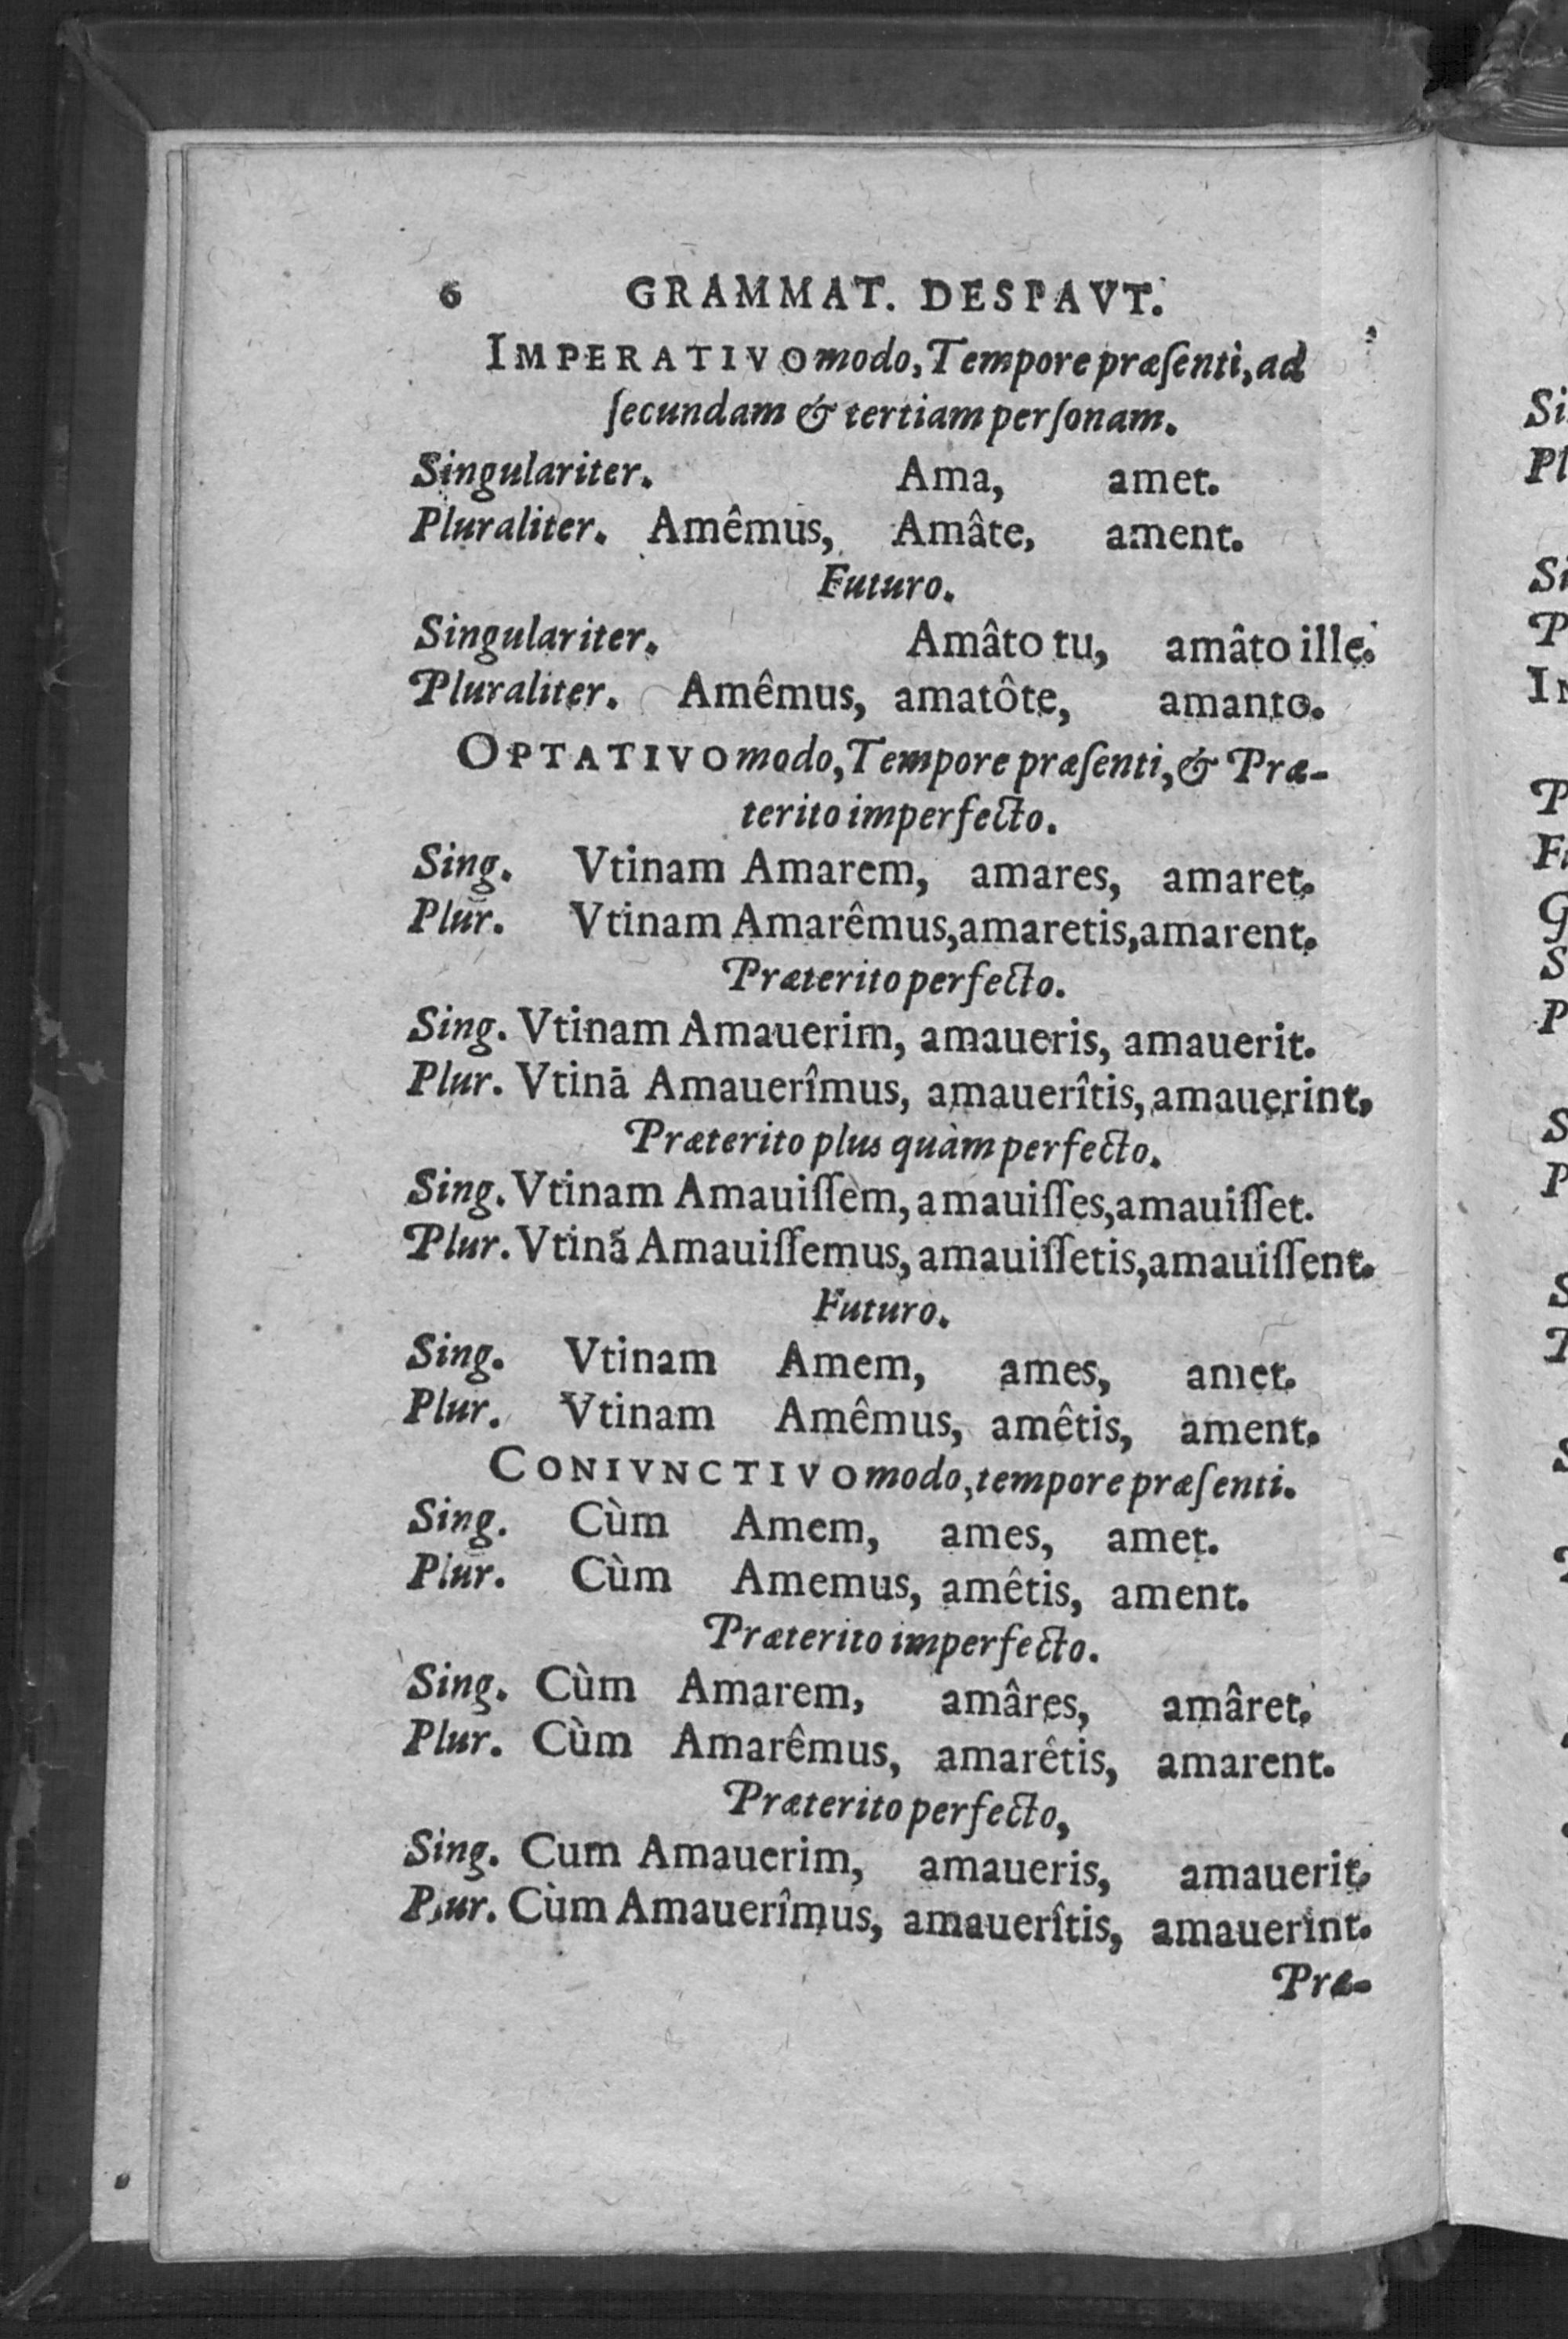 6 GRAMMAT. DESPAVT.
IMPERATIVO modo, Tempore præſenti, ad
ſecundam & tertiam perſonam.
Singulariter. Ama, amet.
Pluraliter. Amêmus, Amâte, ament.
Futuro.
Singulariter. Amâto tu, amâto ille.
Pluraliter. Amêmus, amatôte, amanto.
OPTATIVO modo, Tempore præſenti, & Præ-
terito imperfecto.
Sing. Vtinam Amarem, amares, amaret.
Plur. Vtinam Amarêmus, amaretis, amarent.
Præterito perfecto.
Sing. Vtinam Amauerim, amaueris, amauerit.
Plur. Vtinā Amauerîmus, amauerîtis, amauerint.
Præterito plus quàm perfecto.
Sing. Vtinam Amauiſſem, amauiſſes, amauiſſet.
Plur. Vtinā Amauiſſemus, amauiſſetis, amauiſſent.
Futuro.
Sing. Vtinam Amem, ames, amet.
Plur. Vtinam Amêmus, amêtis, ament.
CONIVNCTIVO modo, tempore præſenti.
Sing. Cùm Amem, ames, amet.
Plur. Cùm Amemus, amêtis, ament.
Præterito imperfecto.
Sing. Cùm Amarem, amâres, amâret.
Plur. Cùm Amarêmus, amarêtis, amarent.
Præterito perfecto,
Sing. Cum Amauerim, amaueris, amauerit.
Plur. Cùm Amauerîmus, amauerîtis, amauerint.
Præ-